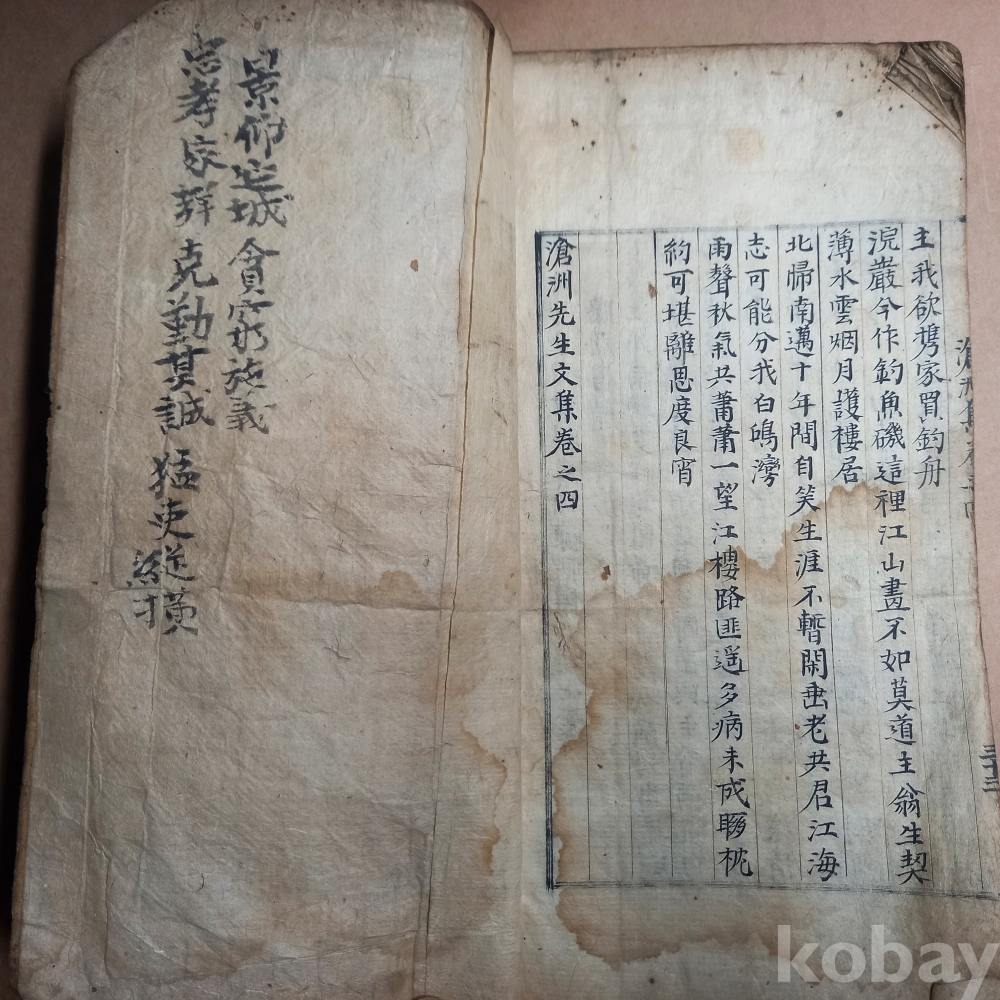 主我欲携家買釣舟
浣巖今作釣魚磯這裡江山畫不如莫道主翁生契
薄水雲烟月護樓居
北歸南邁十年間自笑生涯不暫閑垂老共君江海
志可能分我白鷗灣
雨聲秋氣共蕭蕭一望江樓路匪遥多病未成聯枕
約可堪離思度良宵
滄洲先生文集卷之四
滄洲集卷之四
三十三
景仰 城 貪 家 施義
忠孝家 克勤其誠 猛吏縱橫
kobay